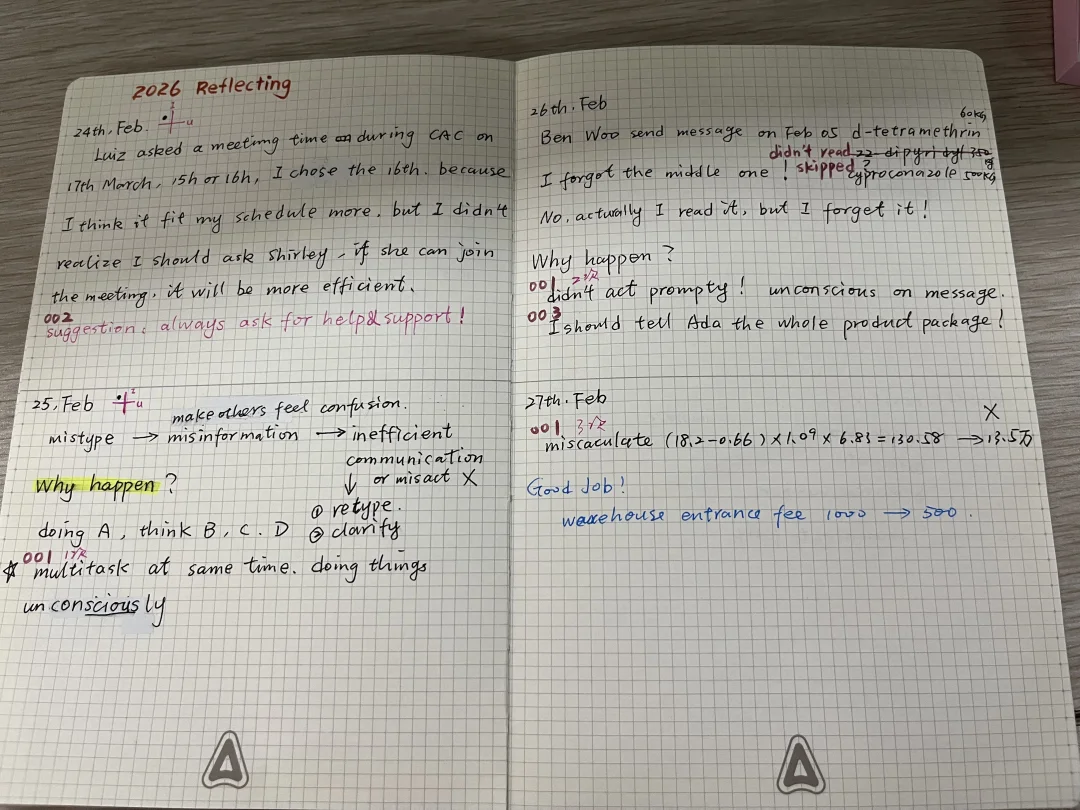 2026 Reflecting
24th, Feb.
Luiz asked a meeting time during CAC on
17th March, 15h or 16h, I chose the 16th. because
I think it fit my schedule more, but I didn't
realize I should ask Shirley, if she can join
the meeting, it will be more efficient.
002
suggestion: always ask for help&support!
25, Feb
make others feel confusion.
mistype → misinformation → inefficient
communication
or misact X
Why happen?
↓
① retype.
doing A, think B, C. D ② clarify
001 1次
☆ multitask at same time. doing things
unconsciously
26th. Feb
60kg
Ben Woo send message on Feb 05 d-tetramethrin
didn't read 22-dipyridyl
I forgot the middle one! skipped? cyproconazole 500kg
No, actually I read it, but I forget it!
Why happen?
001 2次
didn't act prompty! unconscious on message.
003
I should tell Ada the whole product package!
27th. Feb
X
001 3次
miscaculate (18.2-0.66)×1.09×6.83=130.58 → 13.5万
Good Job!
warehouse entrance fee 1000 → 500.